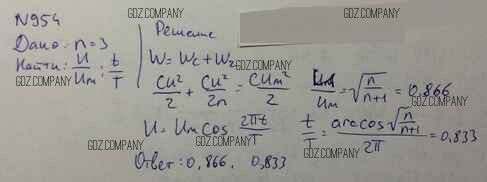 N954
GDZ.COMPANY
Дано: n=3
Найти: U/Um; t/T
GDZ.COMPANY
Решение
W = Wc + W2
GDZ.COMPANY
CU²/2 + CU²/2n = CUm²/2
U/Um = √(n/(n+1)) = 0,866
GDZ.COMPANY
U = Um cos 2πt/T
GDZ.COMPANY
t/T = arccos√(n/(n+1))/2π = 0,833
GDZ.COMPANY
Ответ: 0,866. 0,833
GDZ.COMPANY